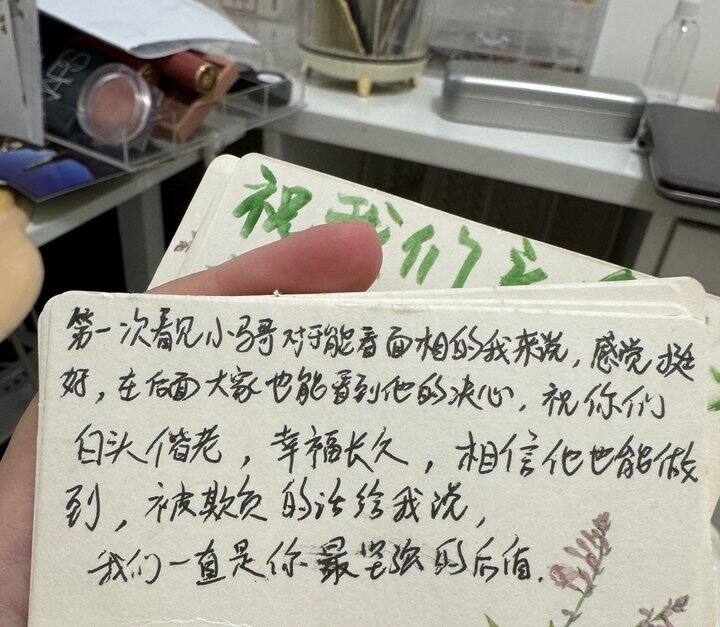 NARS
祝我们
第一次看见小马哥对于能看面相的我来说，感觉挺
好，在后面大家也能看到他的决心，祝你们
白头偕老，幸福长久，相信他也能做
到，被欺负的话给我说，
我们一直是你最坚强的后盾．